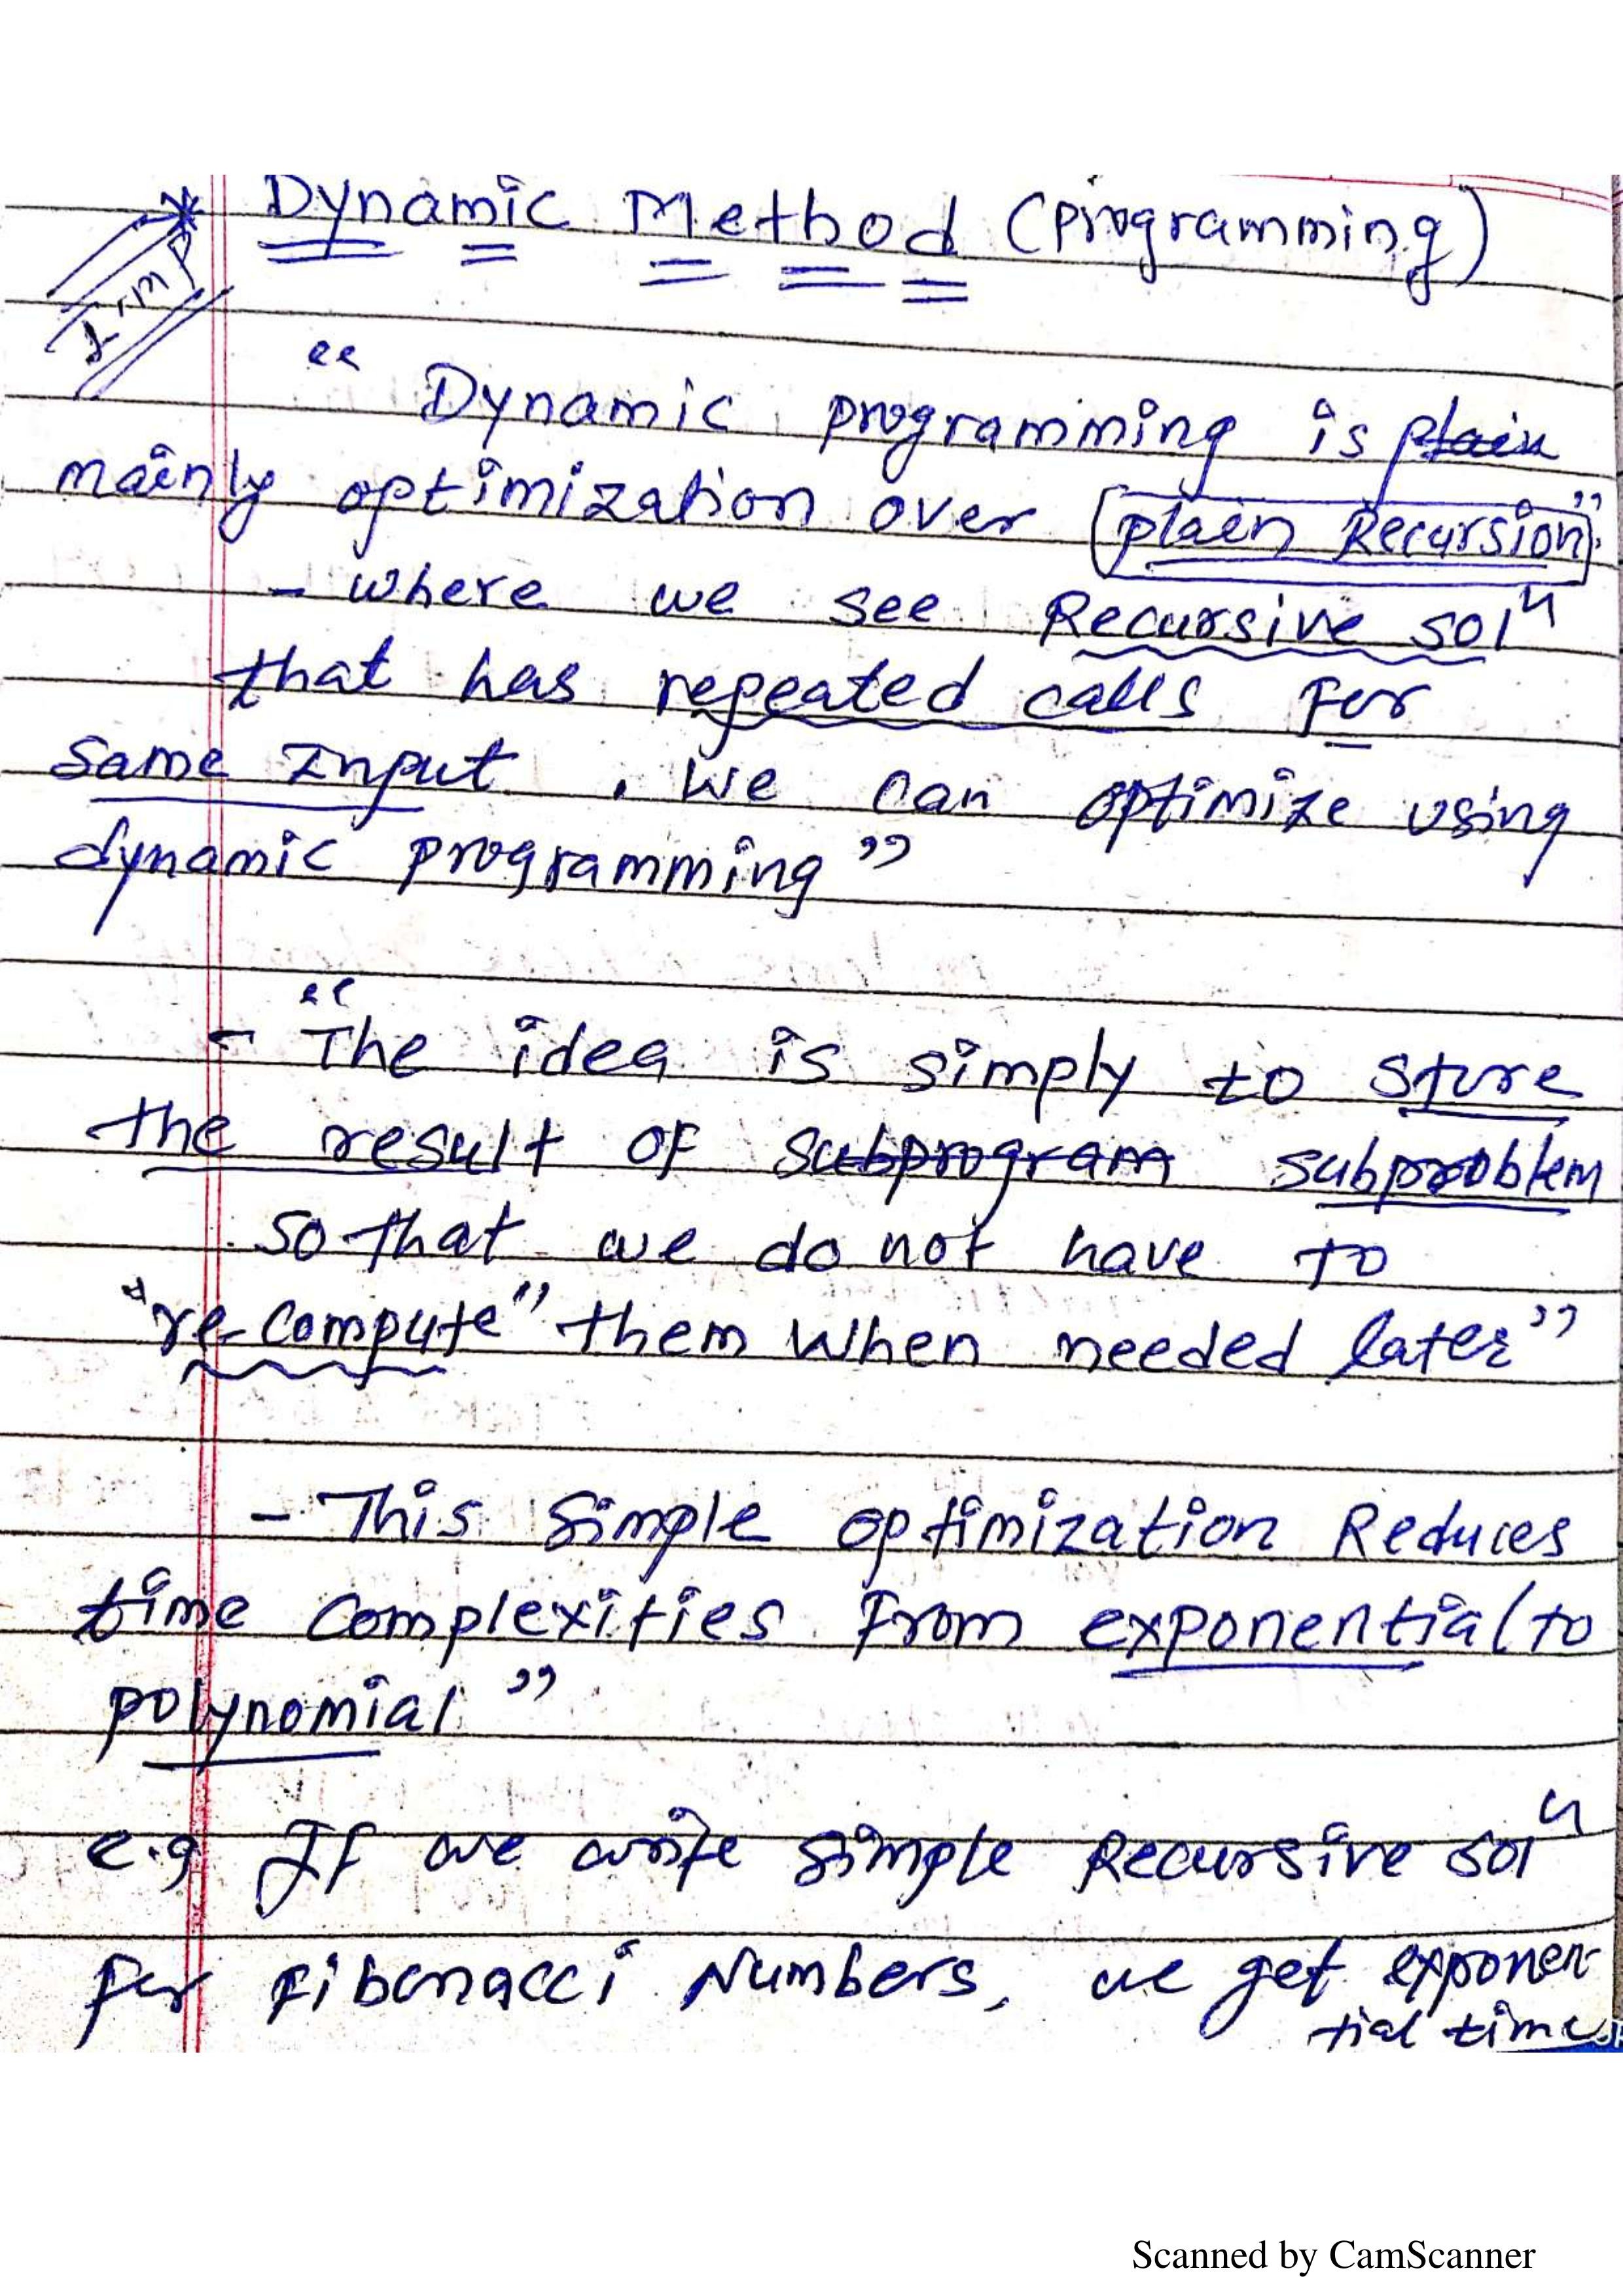 * Dynamic Method (Programming)
Imp
" Dynamic programming is plain
mainly optimization over plain Recursion".
- where we see Recursive solⁿ
that has repeated calls For
Same Input . We can optimize using
dynamic programming"
- "The idea is simply to store
the result of subprogram subproblem
so that we do not have to
"re-compute" them when needed later"
- This simple optimization Reduces
time complexities From exponential to
polynomial"
e.g If we write simple Recursive solⁿ
For Fibonacci Numbers, we get exponen-
tial time
Scanned by CamScanner